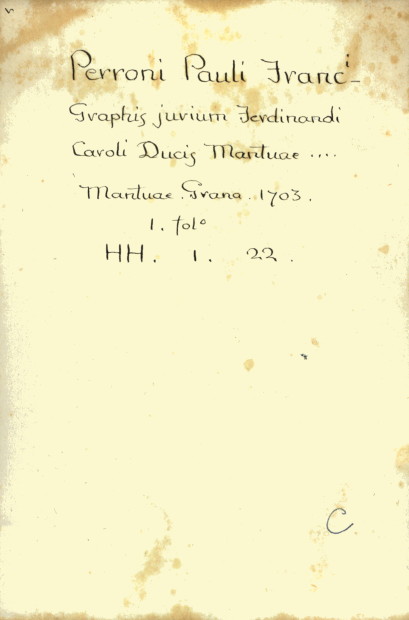 Perroni Pauli Franc^i_
Graphis jurium Ferdinandi
Caroli Ducis Mantuae ....
Mantuae. Grana. 1703.
1. fol°
HH. 1. 22.
C